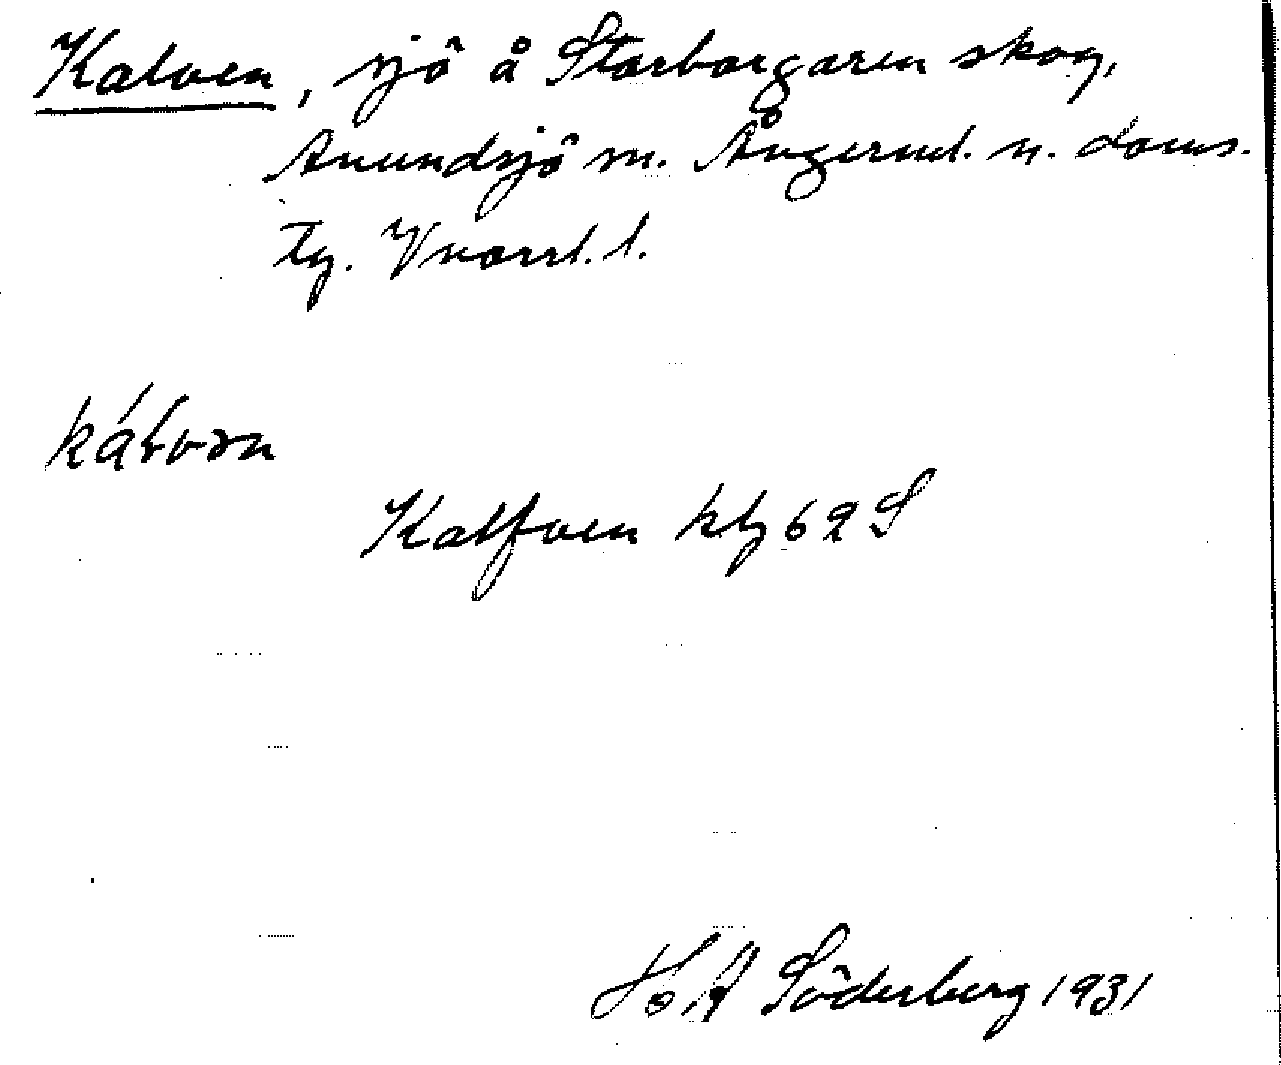 Kalven, sjö å Storborgaren skog,
Anundsjö sn. Ångerml. n. doms.
tg. Vnorrl. l.
kálvən
Kalfven kbg 62 S
H A Söderberg 1931